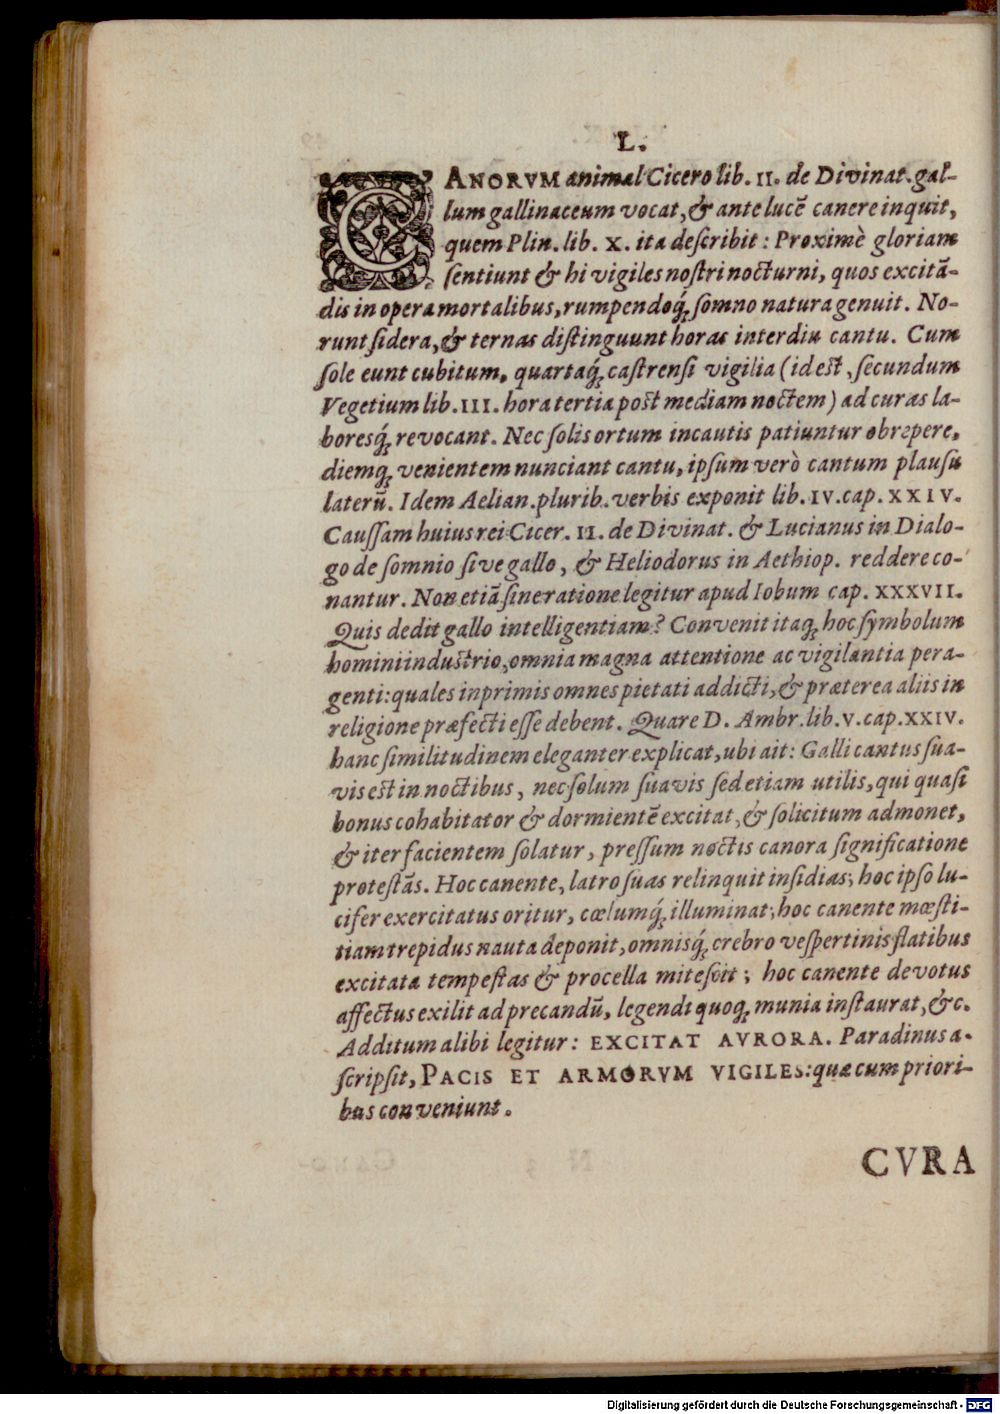 L.
CANORVM animal Cicero lib. II. de Divinat. gal-
lum gallinaceum vocat, & ante lucē canere inquit,
quem Plin. lib. X. ita describit: Proximè gloriam
sentiunt & hi vigiles nostri nocturni, quos excitā-
dis in opera mortalibus, rumpendoq́; somno natura genuit. No-
runt sidera, & ternas distinguunt horas interdiu cantu. Cum
sole eunt cubitum, quartaq́; castrensi vigilia (id est, secundum
Vegetium lib. III. hora tertia post mediam noctem) ad curas la-
boresq́; revocant. Nec solis ortum incautis patiuntur obrepere,
diemq; venientem nunciant cantu, ipsum verò cantum plausu
laterū. Idem Aelian. plurib. verbis exponit lib. IV. cap. XXIV.
Caussam huius rei Cicer. II. de Divinat. & Lucianus in Dialo-
go de somnio sive gallo, & Heliodorus in Aethiop. reddere co-
nantur. Non etiā sine ratione legitur apud Iobum cap. XXXVII.
Quis dedit gallo intelligentiam? Convenit itaq; hoc symbolum
homini industrio, omnia magna attentione ac vigilantia pera-
genti: quales inprimis omnes pietati addicti, & præterea aliis in
religione præfecti esse debent. Quare D. Ambr. lib. V. cap. XXIV.
hanc similitudinem eleganter explicat, ubi ait: Galli cantus sua-
vis est in noctibus, nec solum suavis sed etiam utilis, qui quasi
bonus cohabitator & dormientē excitat, & solicitum admonet,
& iter facientem solatur, pressum noctis canora significatione
protestās. Hoc canente, latro suas relinquit insidias; hoc ipso lu-
cifer exercitatus oritur, cœlumq́; illuminat; hoc canente mœsti-
tiam trepidus nauta deponit, omnisq́; crebro vespertinis flatibus
excitata tempestas & procella mitescit; hoc canente devotus
affectus exilit ad precandū, legendi quoq; munia instaurat, &c.
Additum alibi legitur: EXCITAT AVRORA. Paradinus a-
scripsit, PACIS ET ARMORVM VIGILES: quæ cum priori-
bus conveniunt.
CVRA
Digitalisierung gefördert durch die Deutsche Forschungsgemeinschaft - DFG